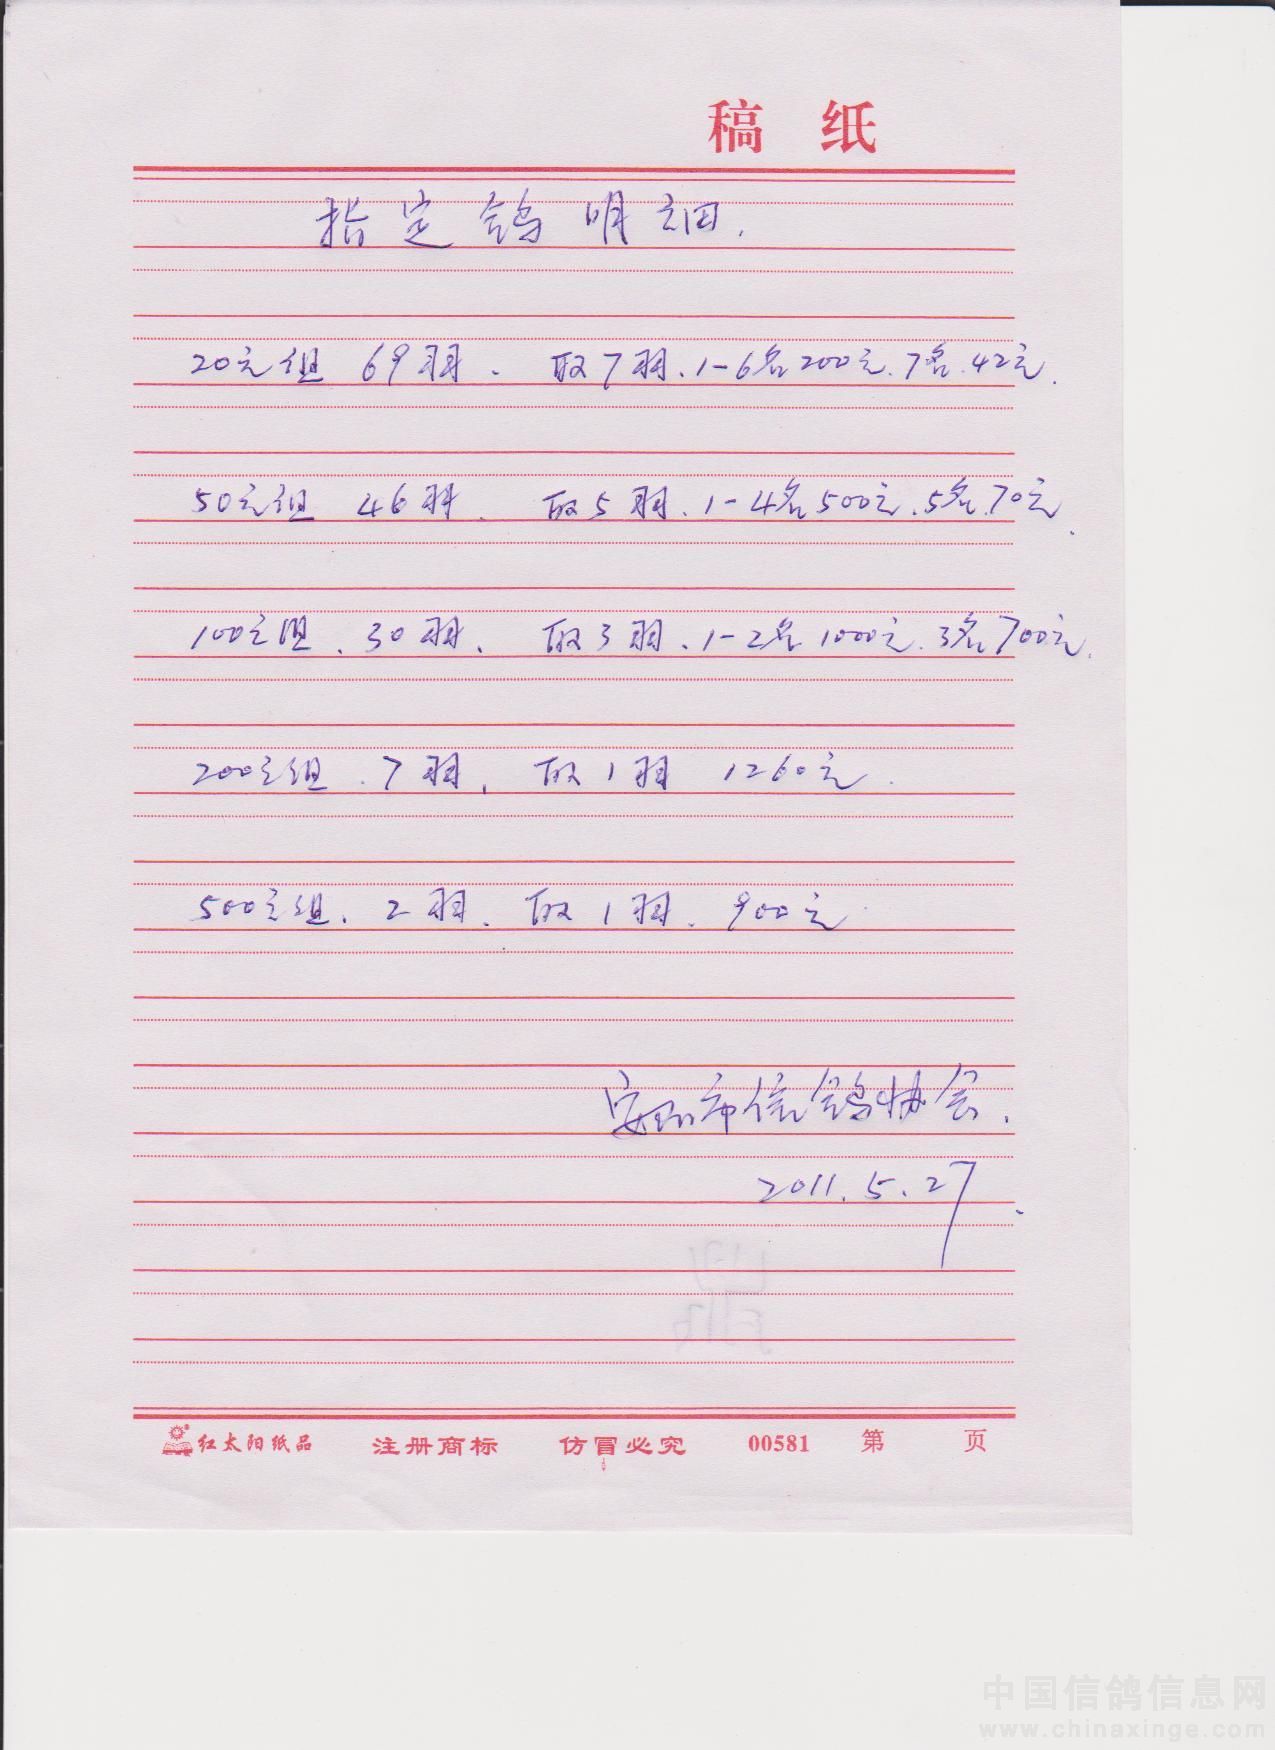 稿 纸
指定鸽明细.
20元组 69羽. 取7羽.1-6名200元.7名.42元.
50元组 46羽. 取5羽.1-4名500元.5名.70元.
100元组.30羽. 取3羽.1-2名1000元.3名700元.
200元组.7羽. 取1羽 1260元.
500元组.2羽. 取1羽.900元
市信鸽协会.
2011.5.27.
红太阳纸品 注册商标 仿冒必究 00581 第 页
中国信鸽信息网
www.chinaxinge.com